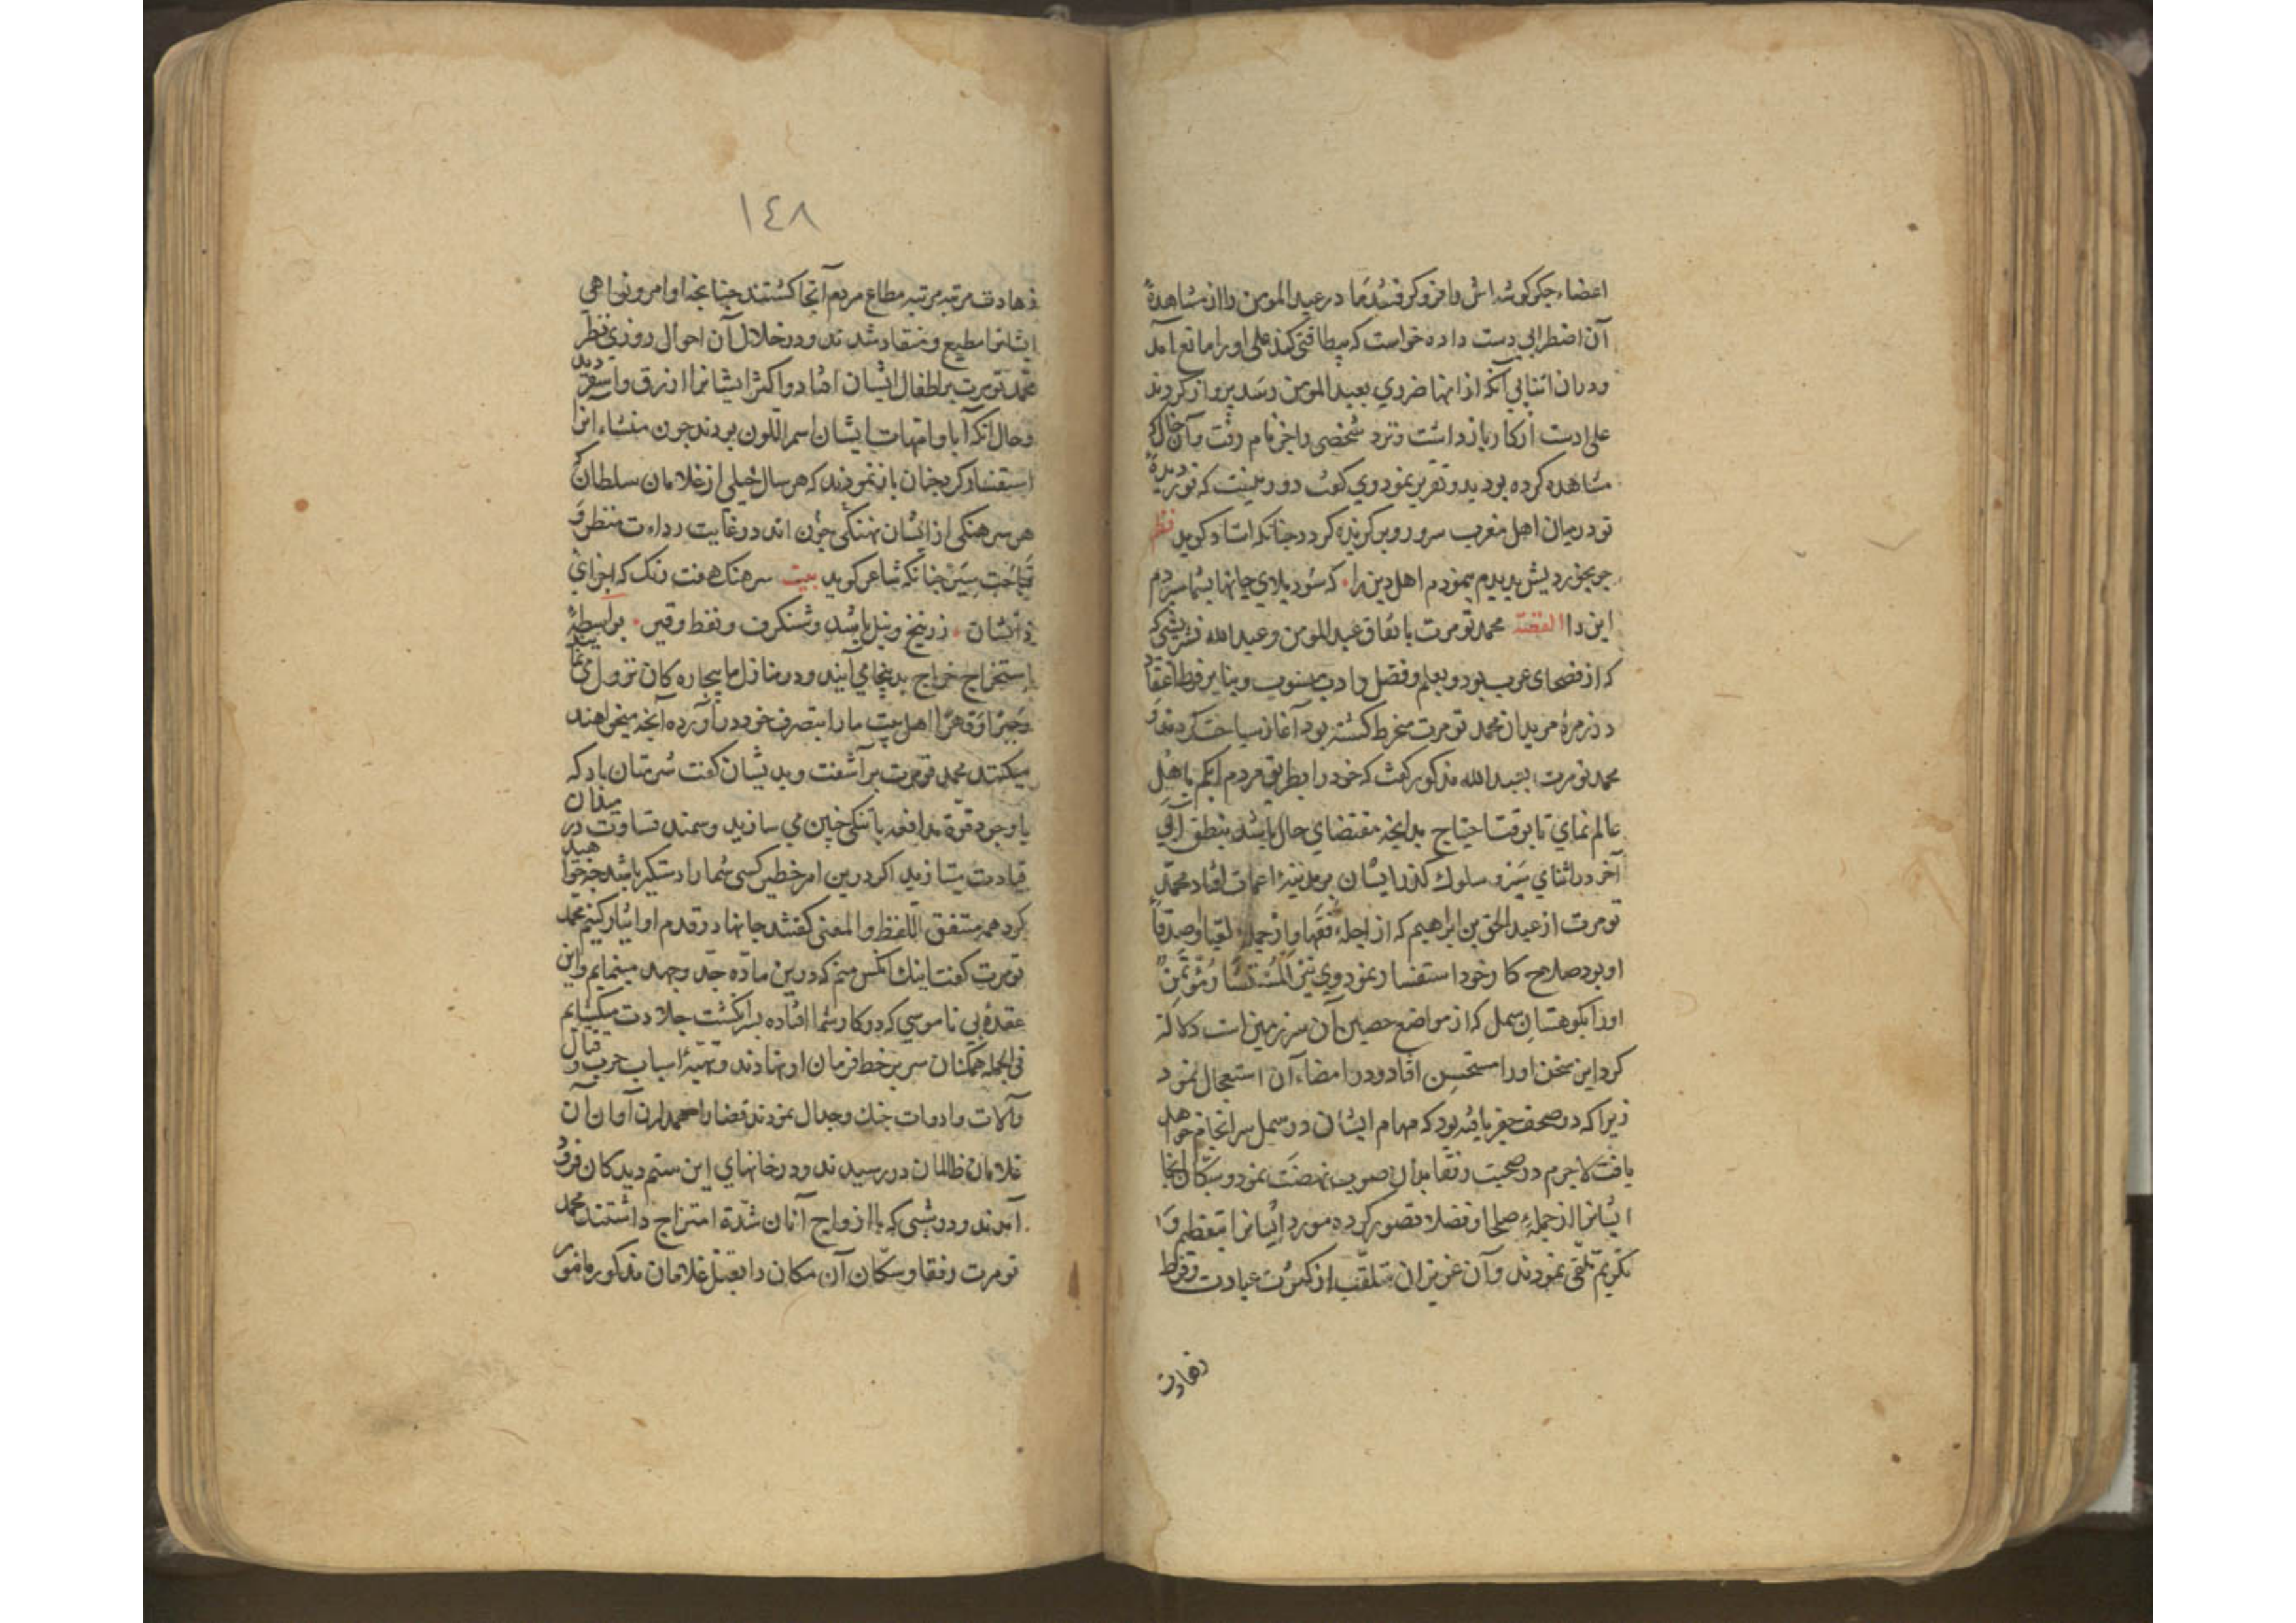 اعضاء جکرکوشه اش را فرو کرفتند اما در عبد المومن را از مشاهدهٔ
آن اضطرابی دست داده خواست که بیطاقتی کند علی او را مانع آمد
و در آن اثنا بی آنکه از انها ضرری بعبد المومن رسد پرواز کردند
علی ادت از کار باز داشت و نزد شخصی رفت و آن حال که
مشاهده کرده بود بدو تقریر نمود وی کفت دور نیست که نور دیدهٔ
تو در میان اهل مغرب سرور و برکزیده کردد چنانکه استاد کوید نظم
این را القصه محمد تومرت باتفاق عبد المومن و عبد الله
که از فصحای عرب بود و بعلم و فضل و ادب منسوب و بنابر فرط اعتقاد
در زمرهٔ مریدان محمد تومرت منخرط کشته بود آغاز سیاحت کردند و
محمد تومرت بعبد الله مذکور کفت که خود را بطریق مردم ابکم باهل
عالم نمای تا بوقت احتیاج بدانچه مقتضای حال باشد بنطق آیی
آخر در اثنای سیر و سلوک کذر ایشان بر مدینهٔ اغمات افتاد محمد
تومرت از عبد الحق بن ابراهیم که از اجلهٔ فقها و از جمله اصدقای
او بود صلاح کار خود استفسار نمود وی نیز المستشار مؤتمن
او را بکوهستان سمل که از مواضع حصین آن سرزمین است دلالت
کرد این سخن او را مستحسن افتاد و در امضاء آن استعجال نمود
زیرا که در صحف جفر یافته بود که مهام ایشان در سمل سرانجام خواهد
یافت لاجرم در صحبت رفقا بدان صوب نهضت نمود و سکان آنجا
ایشانرا از جملهٔ صلحا و فضلا تصور کرده مورد ایشانرا بتعظیم و
تکریم تلقی نمودند و آن عزیزان از کثرت عبادت و فرط
زهادت
١٤٨
زهادت مرتبه مرتبه مطاع مردم آنجا کشتند چنانچه اوامر و نواهی
ایشانرا مطیع و منقاد شدند و در خلال آن احوال روزی نظر
محمد تومرت بر اطفال ایشان افتاد و اکثر ایشانرا ازرق و اشقر دید
و حال آنکه آبا و امهات ایشان اسمر اللون بودند چون منشاء آنرا
استفسار کرد چنان باز نمودند که هر سال خیلی از غلامان سلطان که
هر سرهنکی از ایشان نهنکی اند در غایت رداءت منظر و
قباحت سیر چنانکه شاعر کوید بیت سرهنک هفت رنک که اجزای
ذاتشان زرنیخ و نیل باشد و شنکرف و نفط و قیر بواسطهٔ
استخراج خراج بدینجا می آیند و در منازل ما بیچاره کان نزول می نمایند
و جبرا و قهرا اهل بیت ما را بتصرف خود در آورده آنچه میخواهند
میکنند محمد تومرت بر آشفت و بدیشان کفت شرمتان باد که
با وجود قوة مدافعه با ننکی چنین می سازید و سمند قساوت در میدان
قیادت میتازید اکر درین امر خطیر کسی شما را دستکیر باشد چه خواهید
کرد همه متفق اللفظ و المعنی کفتند جانها در قدم او ایثار کنیم محمد
تومرت کفت اینک آنکس منم که درین ماده جد و جهد مینمایم و این
عقدهٔ بی ناموسی که در کار شما افتاده بسر انکشت جلادت میکشایم
فی الجمله همکنان سر بر خط فرمان او نهادند و تهیهٔ اسباب حرب و قتال
و آلات و ادوات جنک و جدال نمودند قضا را در آن آوان آن
غلامان ظالمان در رسیدند و در خانهای این ستم دیدکان فرود
آمدند و در شبی که با ازواج آنان امتزاج داشتند محمد
تومرت رفقا و سکان آن مکان را بقتل غلامان مذکور مامور